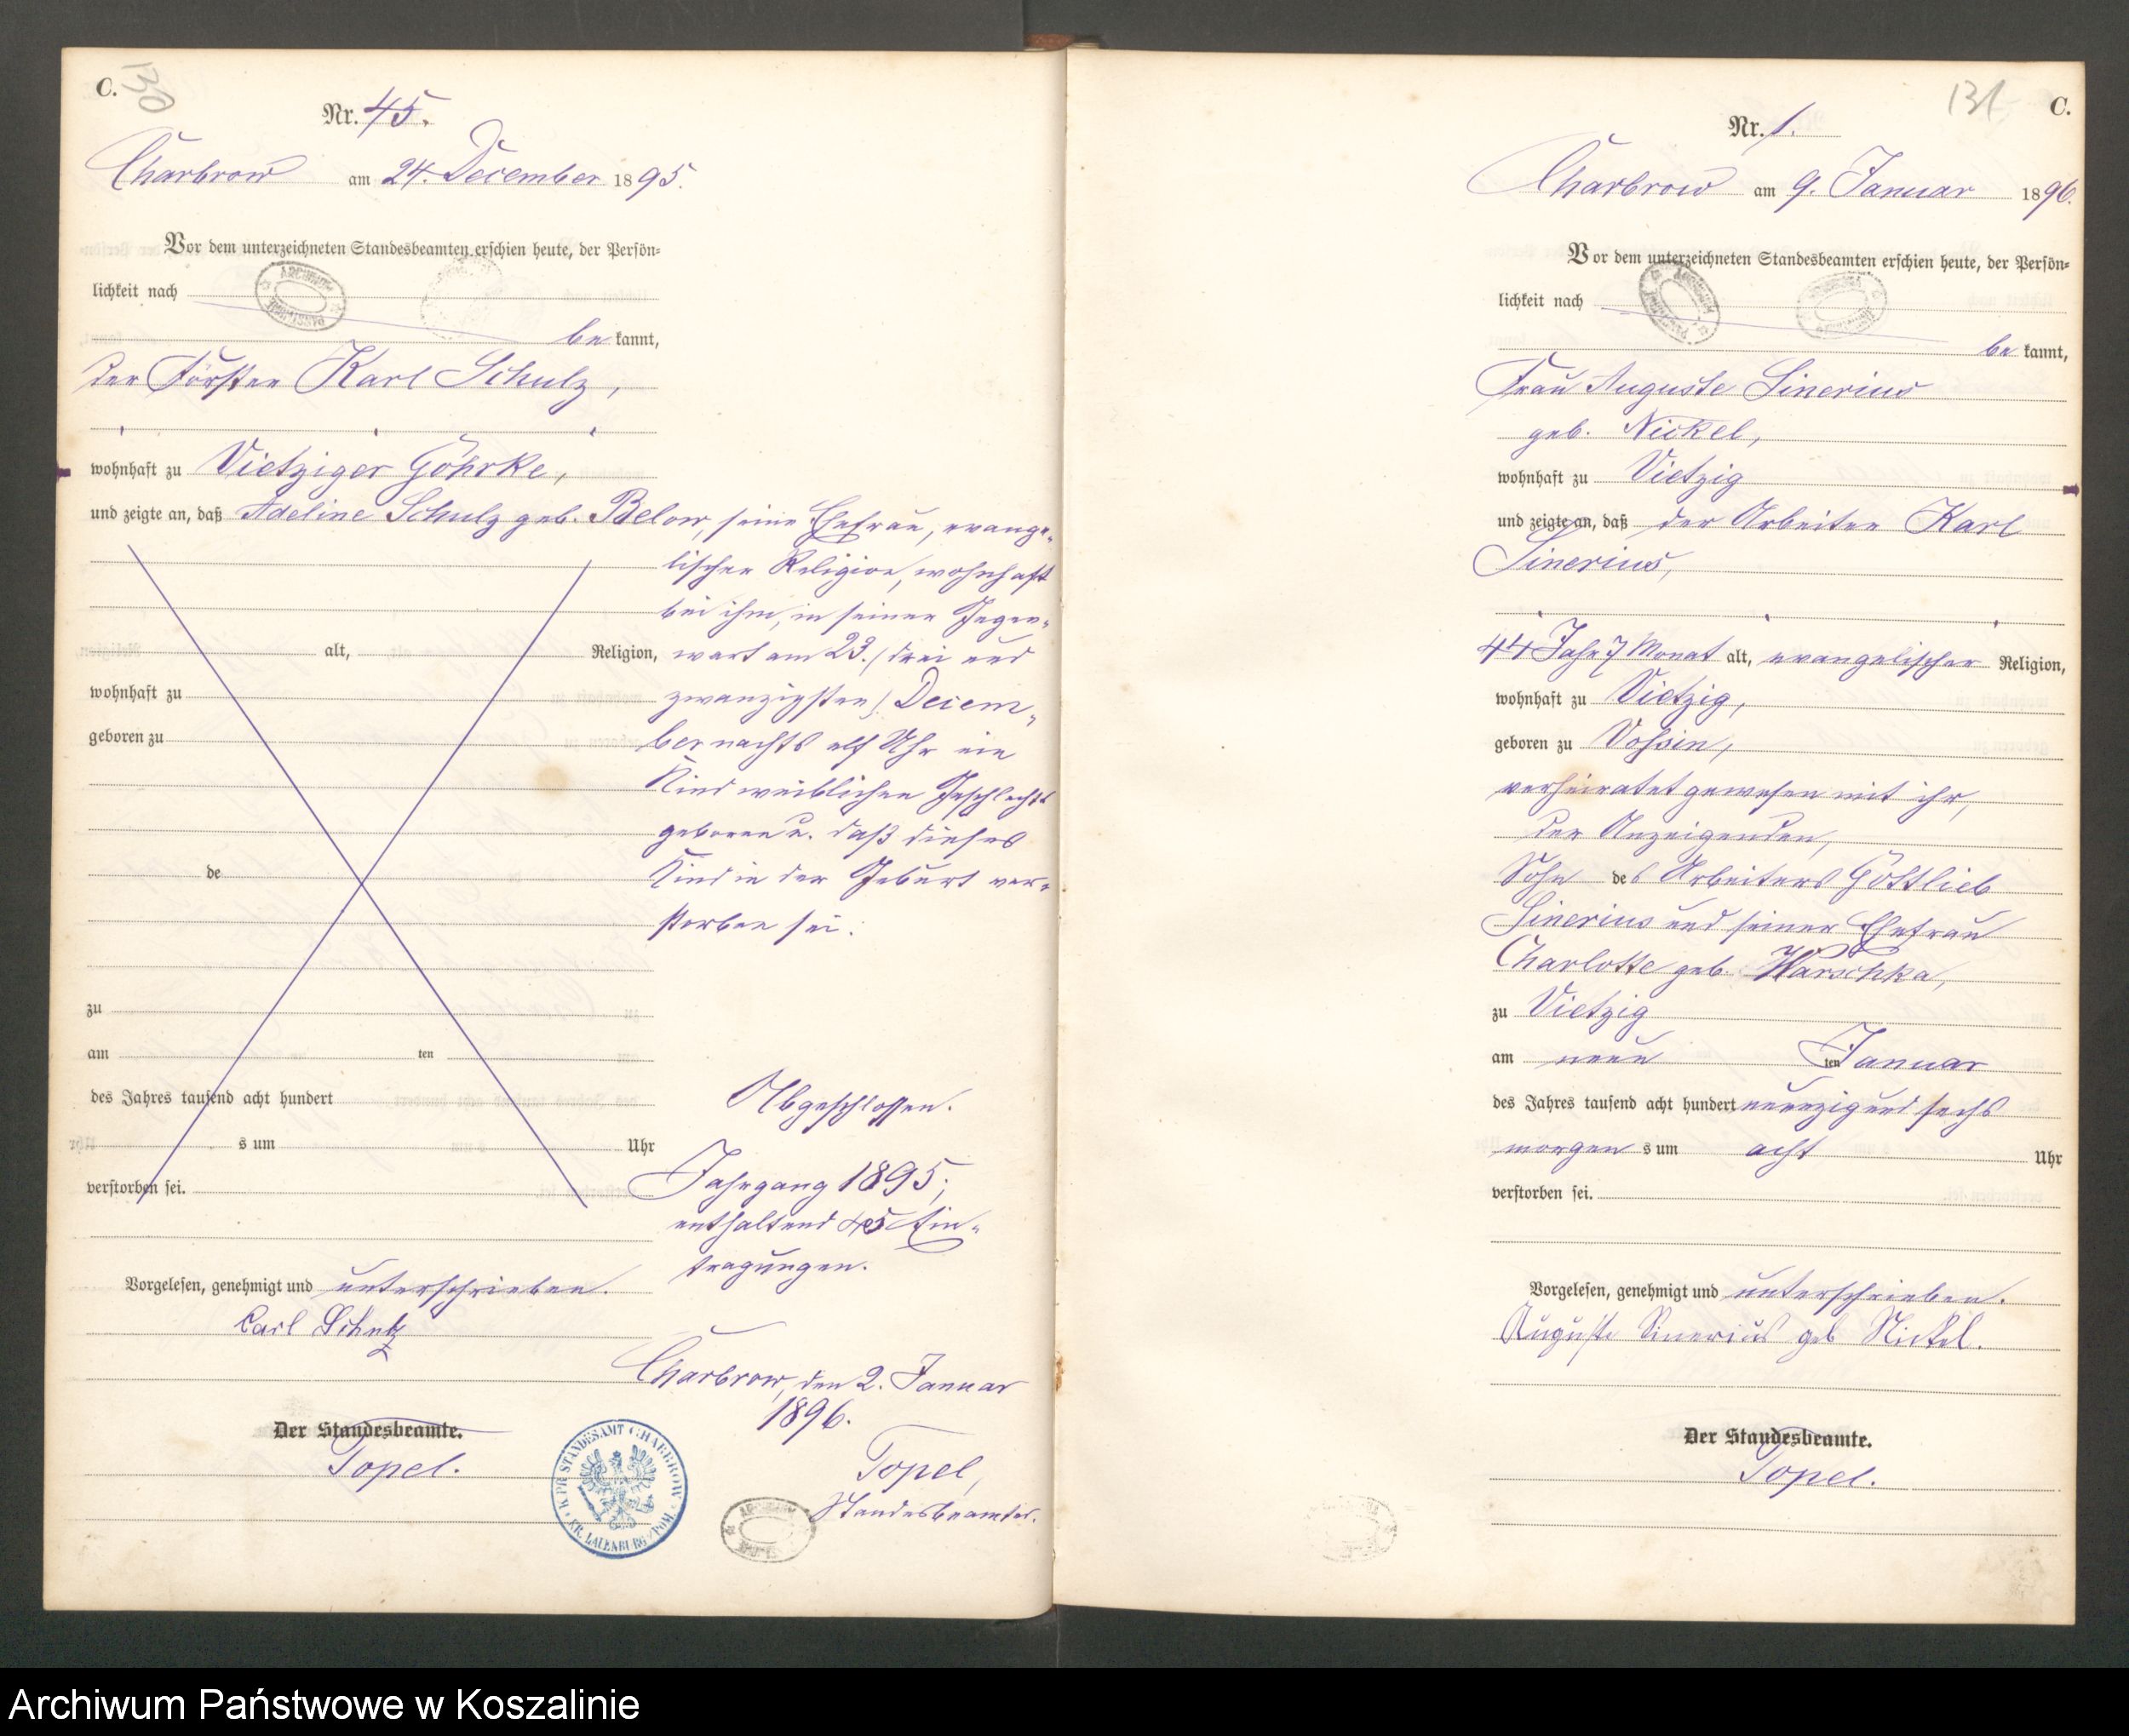 C. 130
Nr. 45.
Charbrow am 24. December 1895.
Vor dem unterzeichneten Standesbeamten erschien heute, der Persön-
lichkeit nach
bekannt,
der Förster Karl Schulz,
wohnhaft zu Vietziger Göhrke,
und zeigte an, daß Adeline Schulz geb. Below, seine Ehefrau, evange-
lischer Religion, wohnhaft
bei ihm, in seiner Gegen-
alt, Religion, wart am 23. /drei und
wohnhaft zu zwanzigsten/ Decem-
geboren zu ber nachts elf Uhr ein
Kind weiblichen Geschlechts
geboren u. daß dieses
de Kind in der Geburt ver-
storben sei.
zu
am ten
des Jahres tausend acht hundert Abgeschlossen.
s um Uhr
verstorben sei. Jahrgang 1895,
enthaltend 45 Ein-
tragungen.
Vorgelesen, genehmigt und unterschrieben.
Carl Schulz
Charbrow, den 2. Januar
1896.
Der Standesbeamte.
Topel.
Topel,
Standesbeamter.
K. PR. STANDESAMT CHARBROW
KR. LAUENBURG i/POM.
131 C.
Nr. 1.
Charbrow am 9. Januar 1896.
Vor dem unterzeichneten Standesbeamten erschien heute, der Persön-
lichkeit nach
bekannt,
Frau Auguste Sinerius
geb. Nickel,
wohnhaft zu Vietzig
und zeigte an, daß der Arbeiter Karl
Sinerius,
44 Jahr 7 Monat alt, evangelischer Religion,
wohnhaft zu Vietzig,
geboren zu Vossin,
verheiratet gewesen mit ihr,
der Anzeigenden,
Sohn des Arbeiters Gottlieb
Sinerius und seiner Ehefrau
Charlotte geb. Warschka,
zu Vietzig
am neun ten Januar
des Jahres tausend acht hundert neunzig und sechs
morgens um acht Uhr
verstorben sei.
Vorgelesen, genehmigt und unterschrieben.
Auguste Sinerius geb Nickel.
Der Standesbeamte.
Topel.
Archiwum Państwowe w Koszalinie